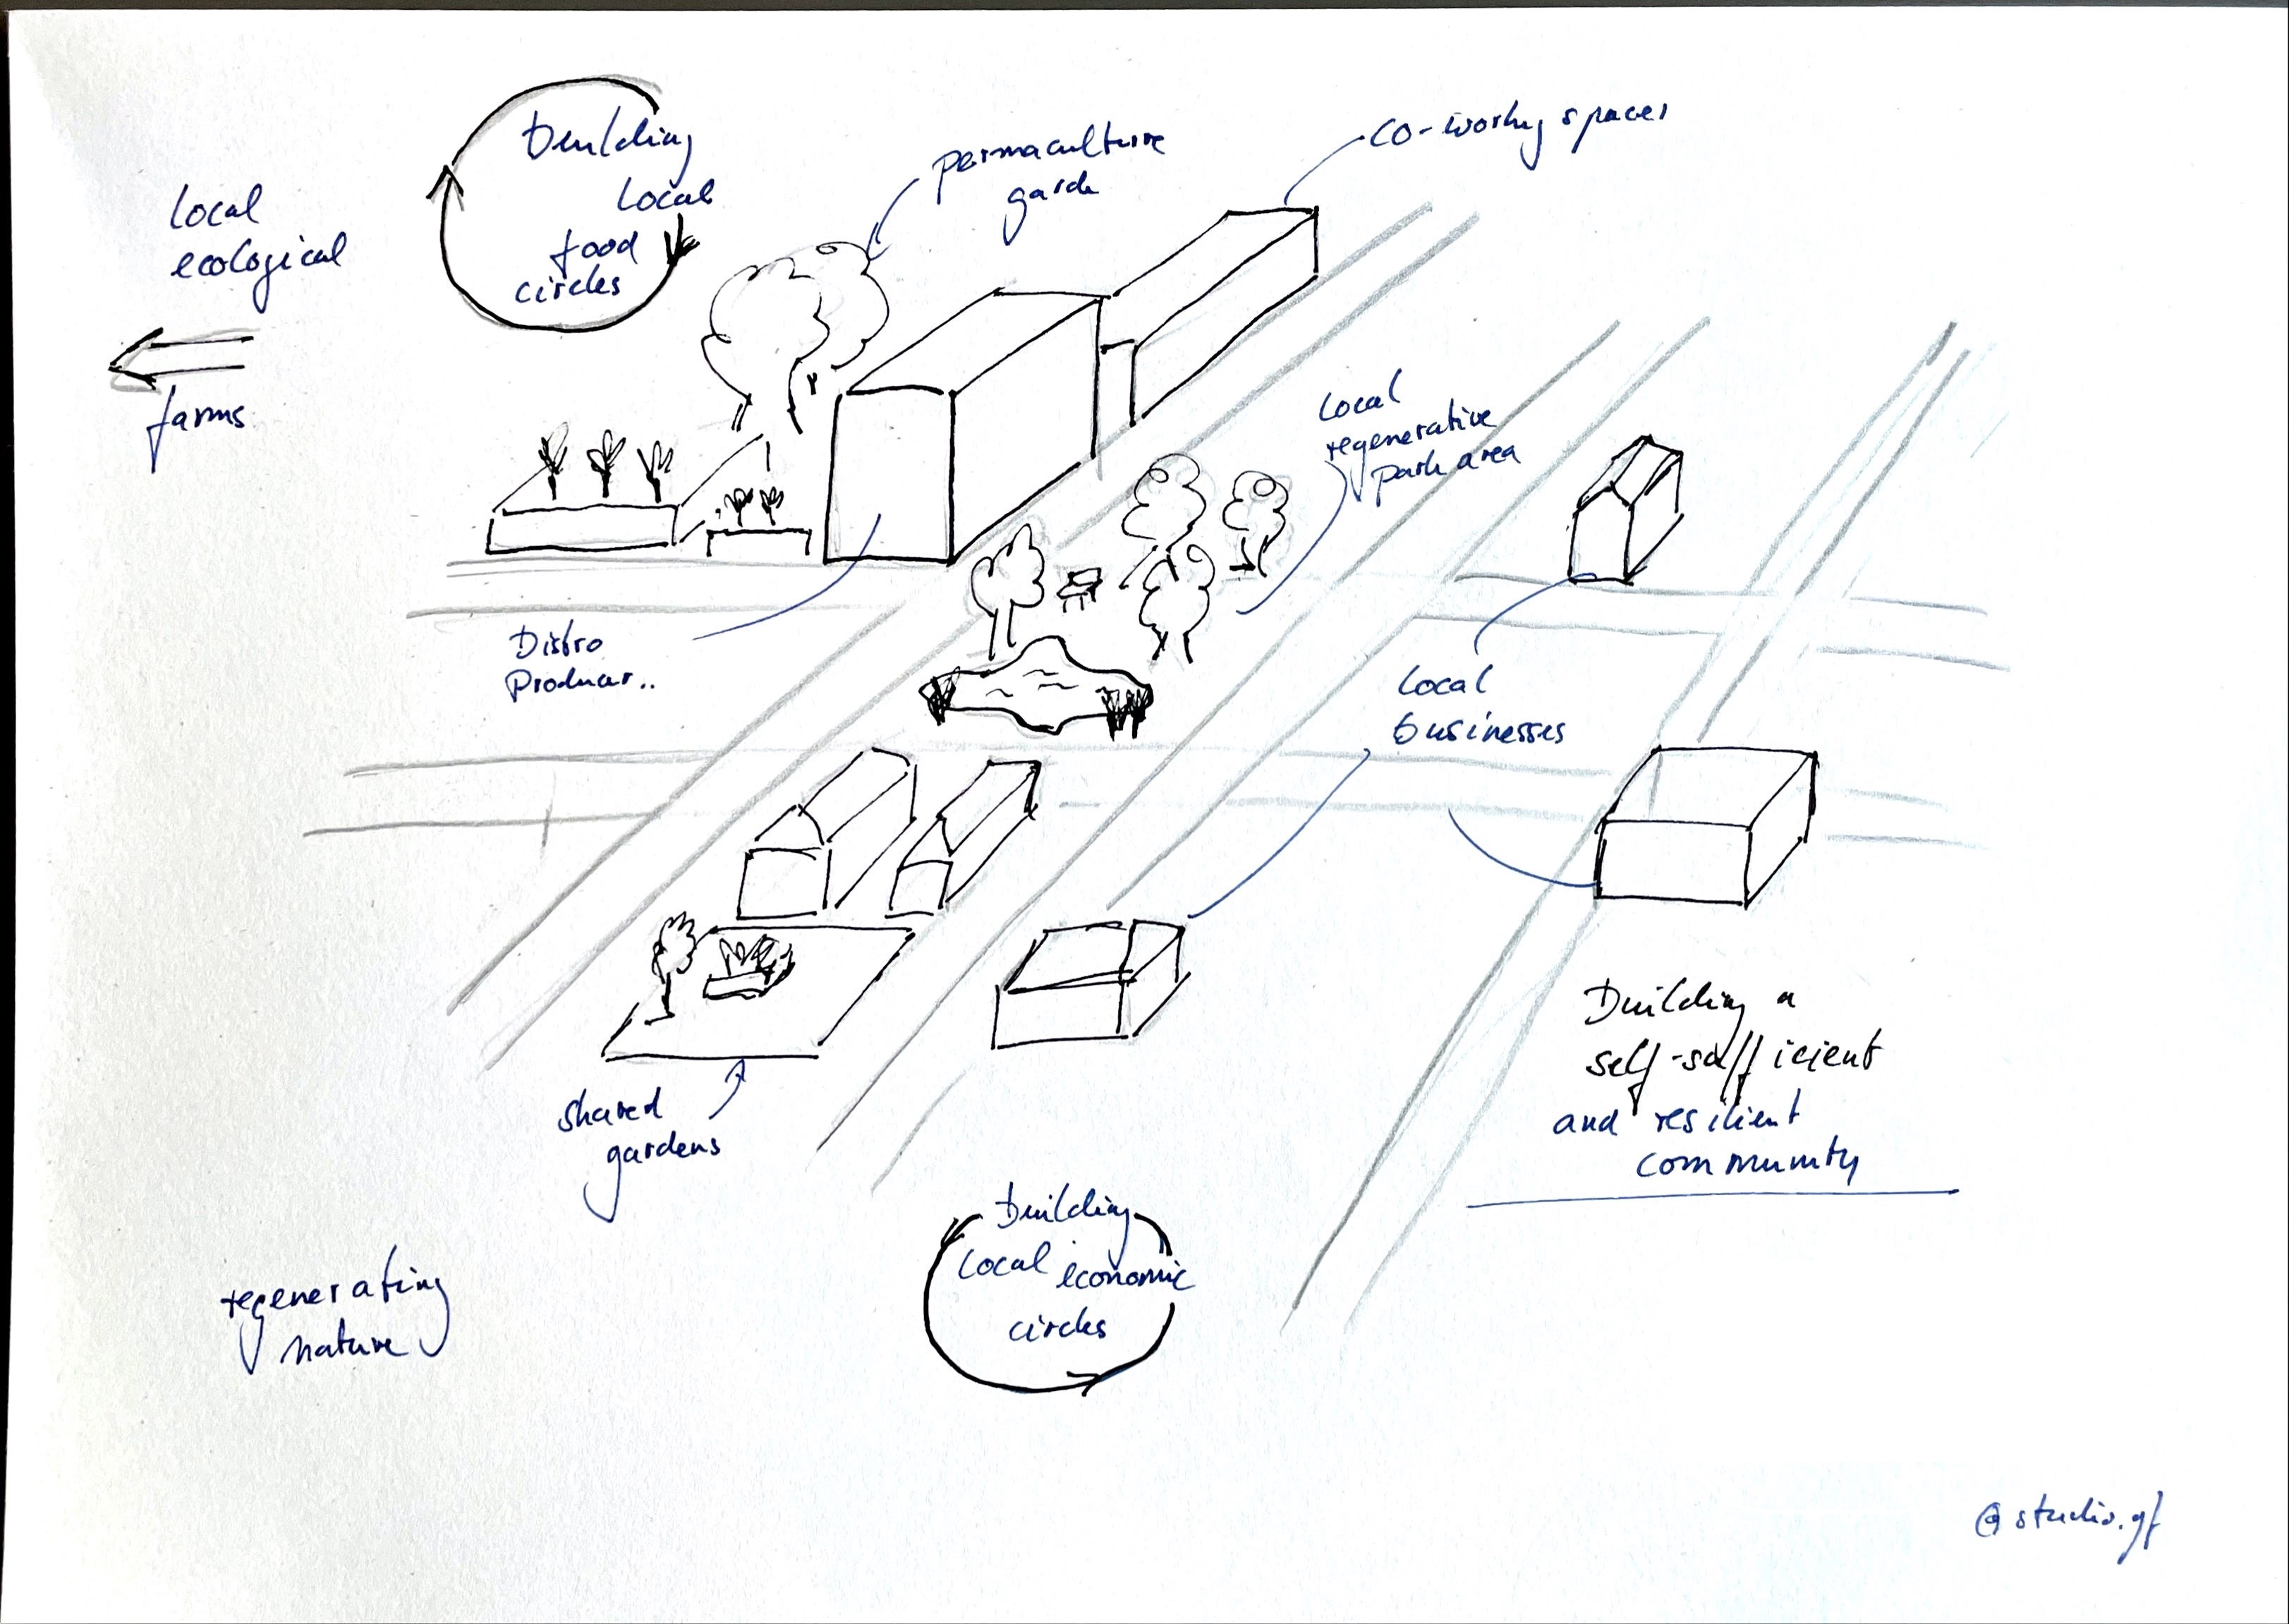 Building
Local
food
circles
permaculture
garde
co-workng spaces
Local
ecological
farms
Local
regenerative
park area
Distro
Local
businesses
Building a
self-sufficient
and resilient
community
shared
gardens
Building
Local economic
circles
regenerating
nature
@studio.gf